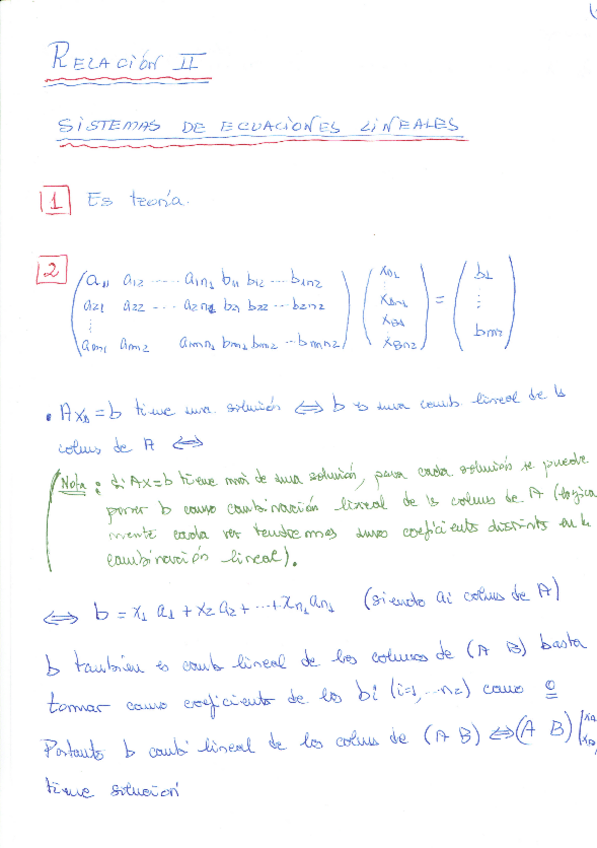 RELACIÓN II
SISTEMAS DE ECUACIONES LINEALES
1 Es teoría.
2
a11 a12 ----- a1n1 b11 b12 --- b1n2
a21 a22 --- a2n1 b21 b22 --- b2n2
am1 am2 amn1 bm1 bm2 -- bmn2
xA1 ⋮ xAn1 xB1 ⋮ xBn2 = b1 ⋮ bm
• AxA = b tiene una solución ⟺ b es una comb lineal de ls
colums de A ⟺
Nota: Si Ax=b tiene más de una solución, para cada solución se puede
poner b como combinación lineal de ls colums de A (lógica
mente cada vez tendremos unos coeficients distints en la
combinación lineal).
⟺ b = x1 a1 + x2 a2 + ---+ xn1 an1 (siendo ai colums de A)
b también es comb lineal de las colums de (A B) basta
tomar como coeficients de los bi (i=1, --n2) como 0
Portanto b comb lineal de las colums de (A B) ⟺ (A B) (xA
xB
tiene solución